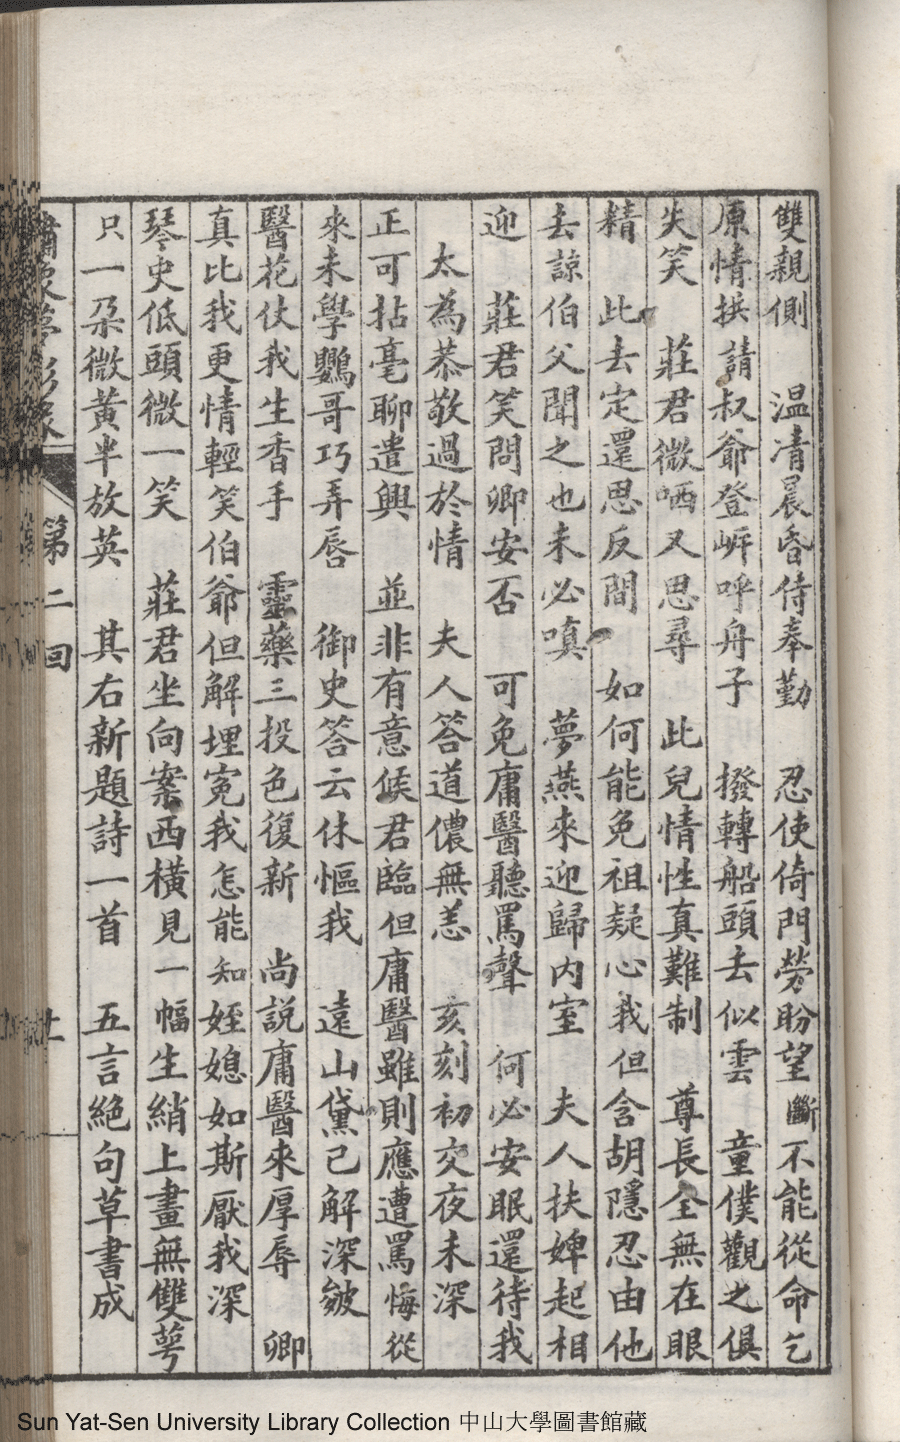 雙親側　溫凊晨昏侍奉勤　忍使倚門勞盼望斷不能從命乞
原情拱請叔爺登㟁呼舟子　撥轉船頭去似雲　童僕觀之俱
失笑　莊君微哂又思尋　此兒情性真難制　尊長全無在眼
精　此去定還思反間　如何能免祖疑心我但含胡隱忍由他
去諒伯父聞之也未必嗔　夢燕來迎歸內室　夫人扶婢起相
迎　莊君笑問卿安否　可免庸醫聽罵聲　何必安眠還待我
　太為恭敬過於情　夫人答道儂無恙　亥刻初交夜未深
正可拈毫聊遣興　並非有意候君臨但庸醫雖則應遭罵悔從
來未學鸚哥巧弄唇　御史答云休慪我　遠山黛已解深皴
醫花仗我生香手　靈藥三投色復新　尚説庸醫來厚辱　卿
真比我更情輕笑伯爺但解埋寃我怎能知姪媳如斯厭我深
琴史低頭微一笑　莊君坐向案西橫見一幅生綃上畫無雙萼
只一朶微黃半放英　其右新題詩一首　五言絕句草書成
第二回
Sun Yat-Sen University Library Collection 中山大學圖書館藏